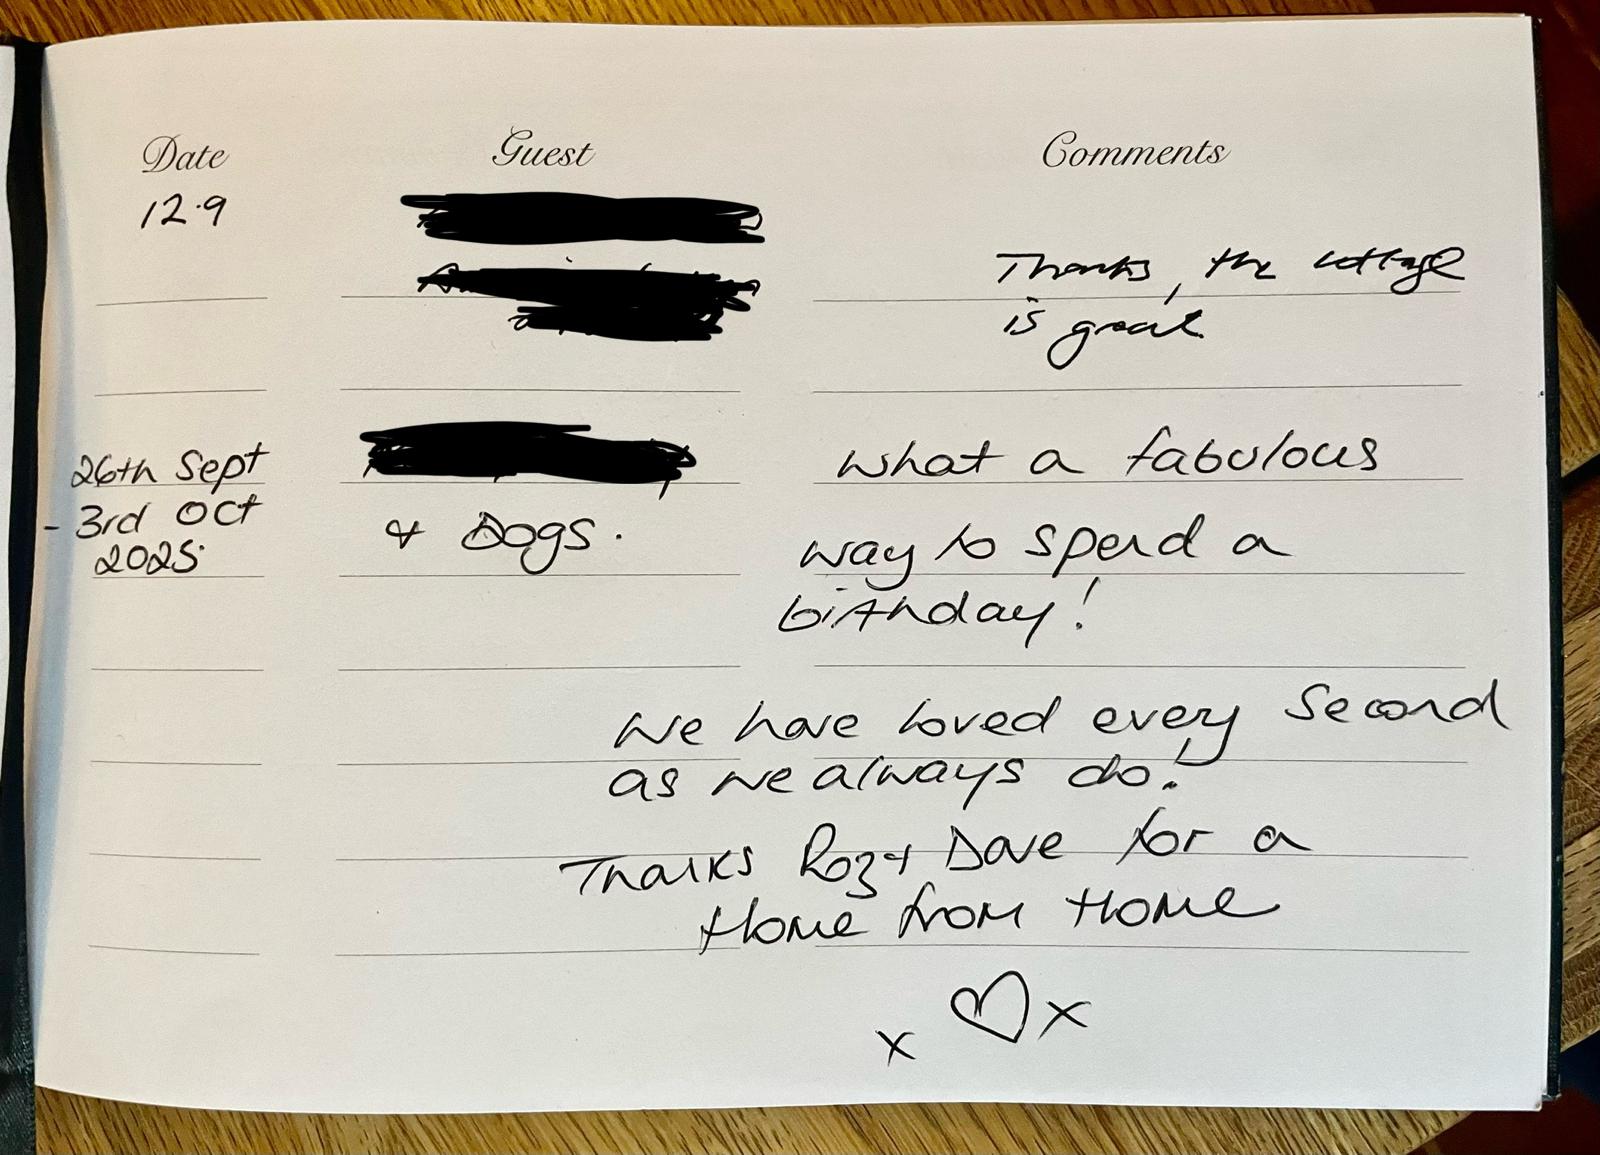 Date Guest Comments
12.9
Thanks, the cottage
is great
26th Sept
- 3rd Oct
2025.
& Dogs.
What a fabulous
way to spend a
birthday!
We have loved every second
as we always do!
Thanks Roz & Dave for a
Home from Home
x ♡ x